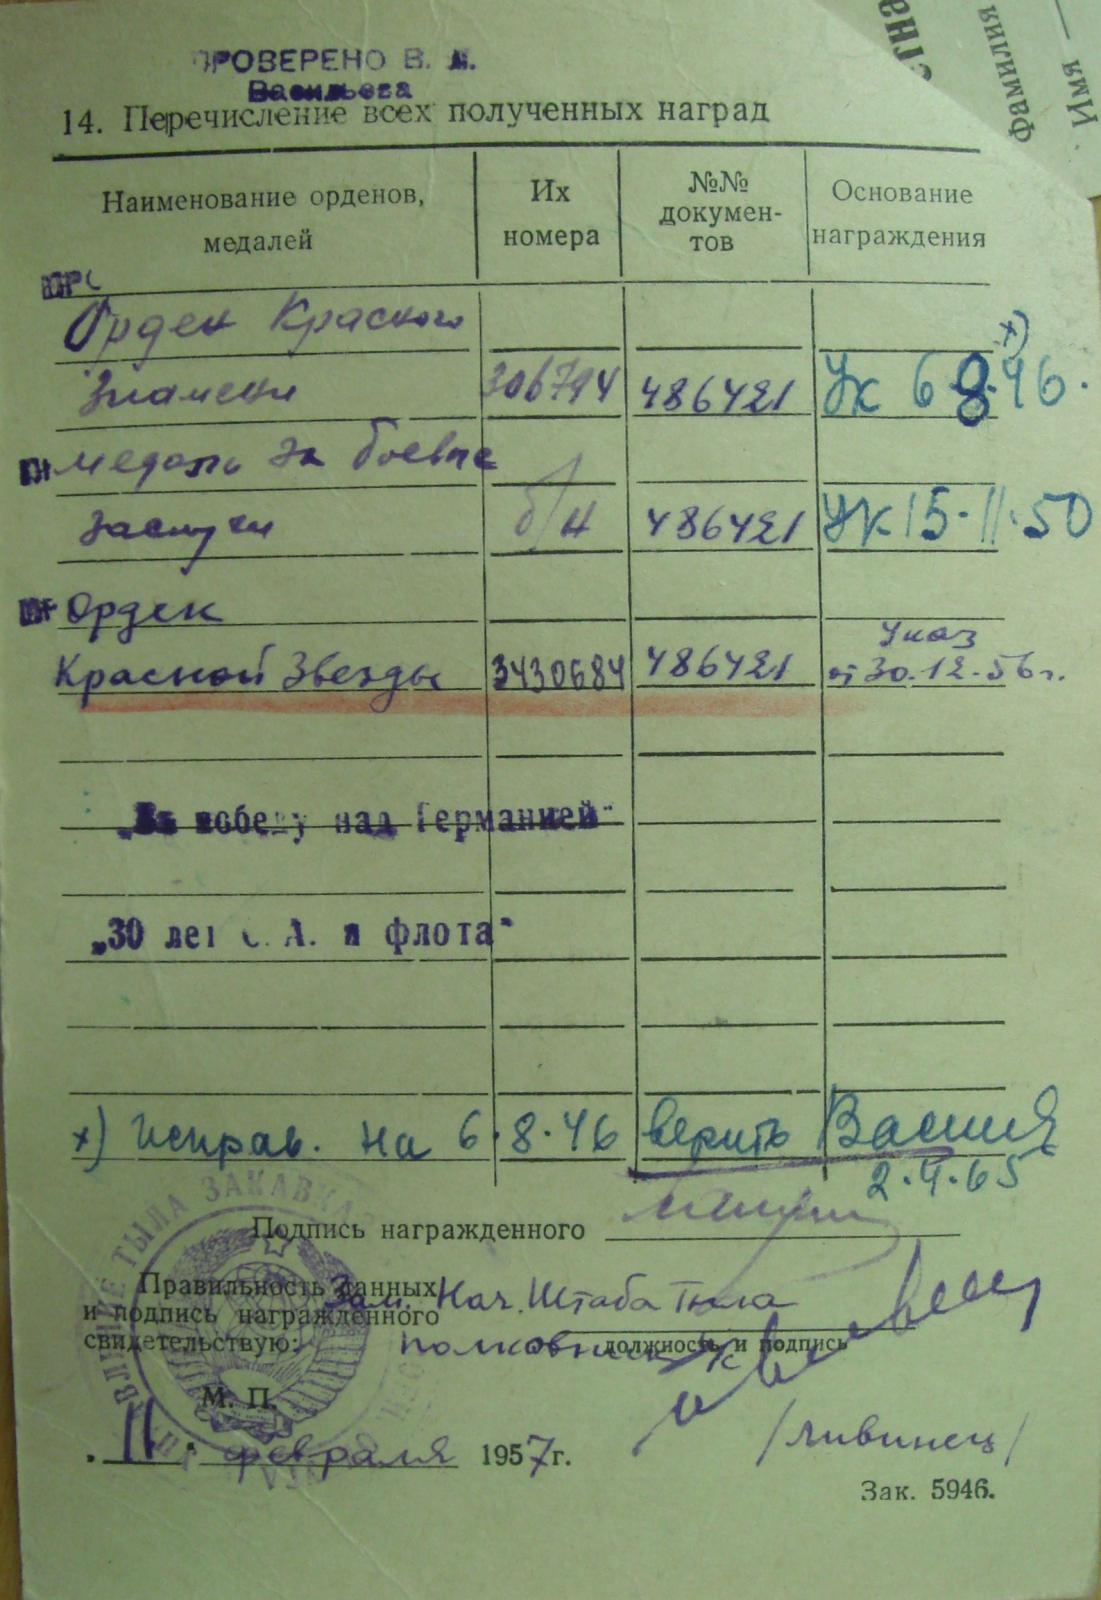 ПРОВЕРЕНО В.
Васильева
14. Перечисление всех полученных наград
Наименование орденов, медалей
Их номера
№№ докумен-тов
Основание награждения
Орден Красного
х)
Знамени 306794 486421 Ук 6 8.46.
медаль за боевые
заслуги б/н 486421 Ук 15.11.50
Орден
Указ
Красной Звезды 3430684 486421 от 30.12.56 г.
„За победу над Германией"
„30 лет С. А. и флота"
х) Исправ. на 6.8.46 верить
2.4.65
Подпись награжденного
Правильность данных
и подпись награжденного
свидетельствую:
Зам. Нач. Штаба Тыла
полковник
должность и подпись
М. П.
/Ливинец/
„11" февраля 1957 г.
Зак. 5946.
УПРАВЛЕНИЕ ТЫЛА ЗАКАВКАЗ
фамилия
Имя